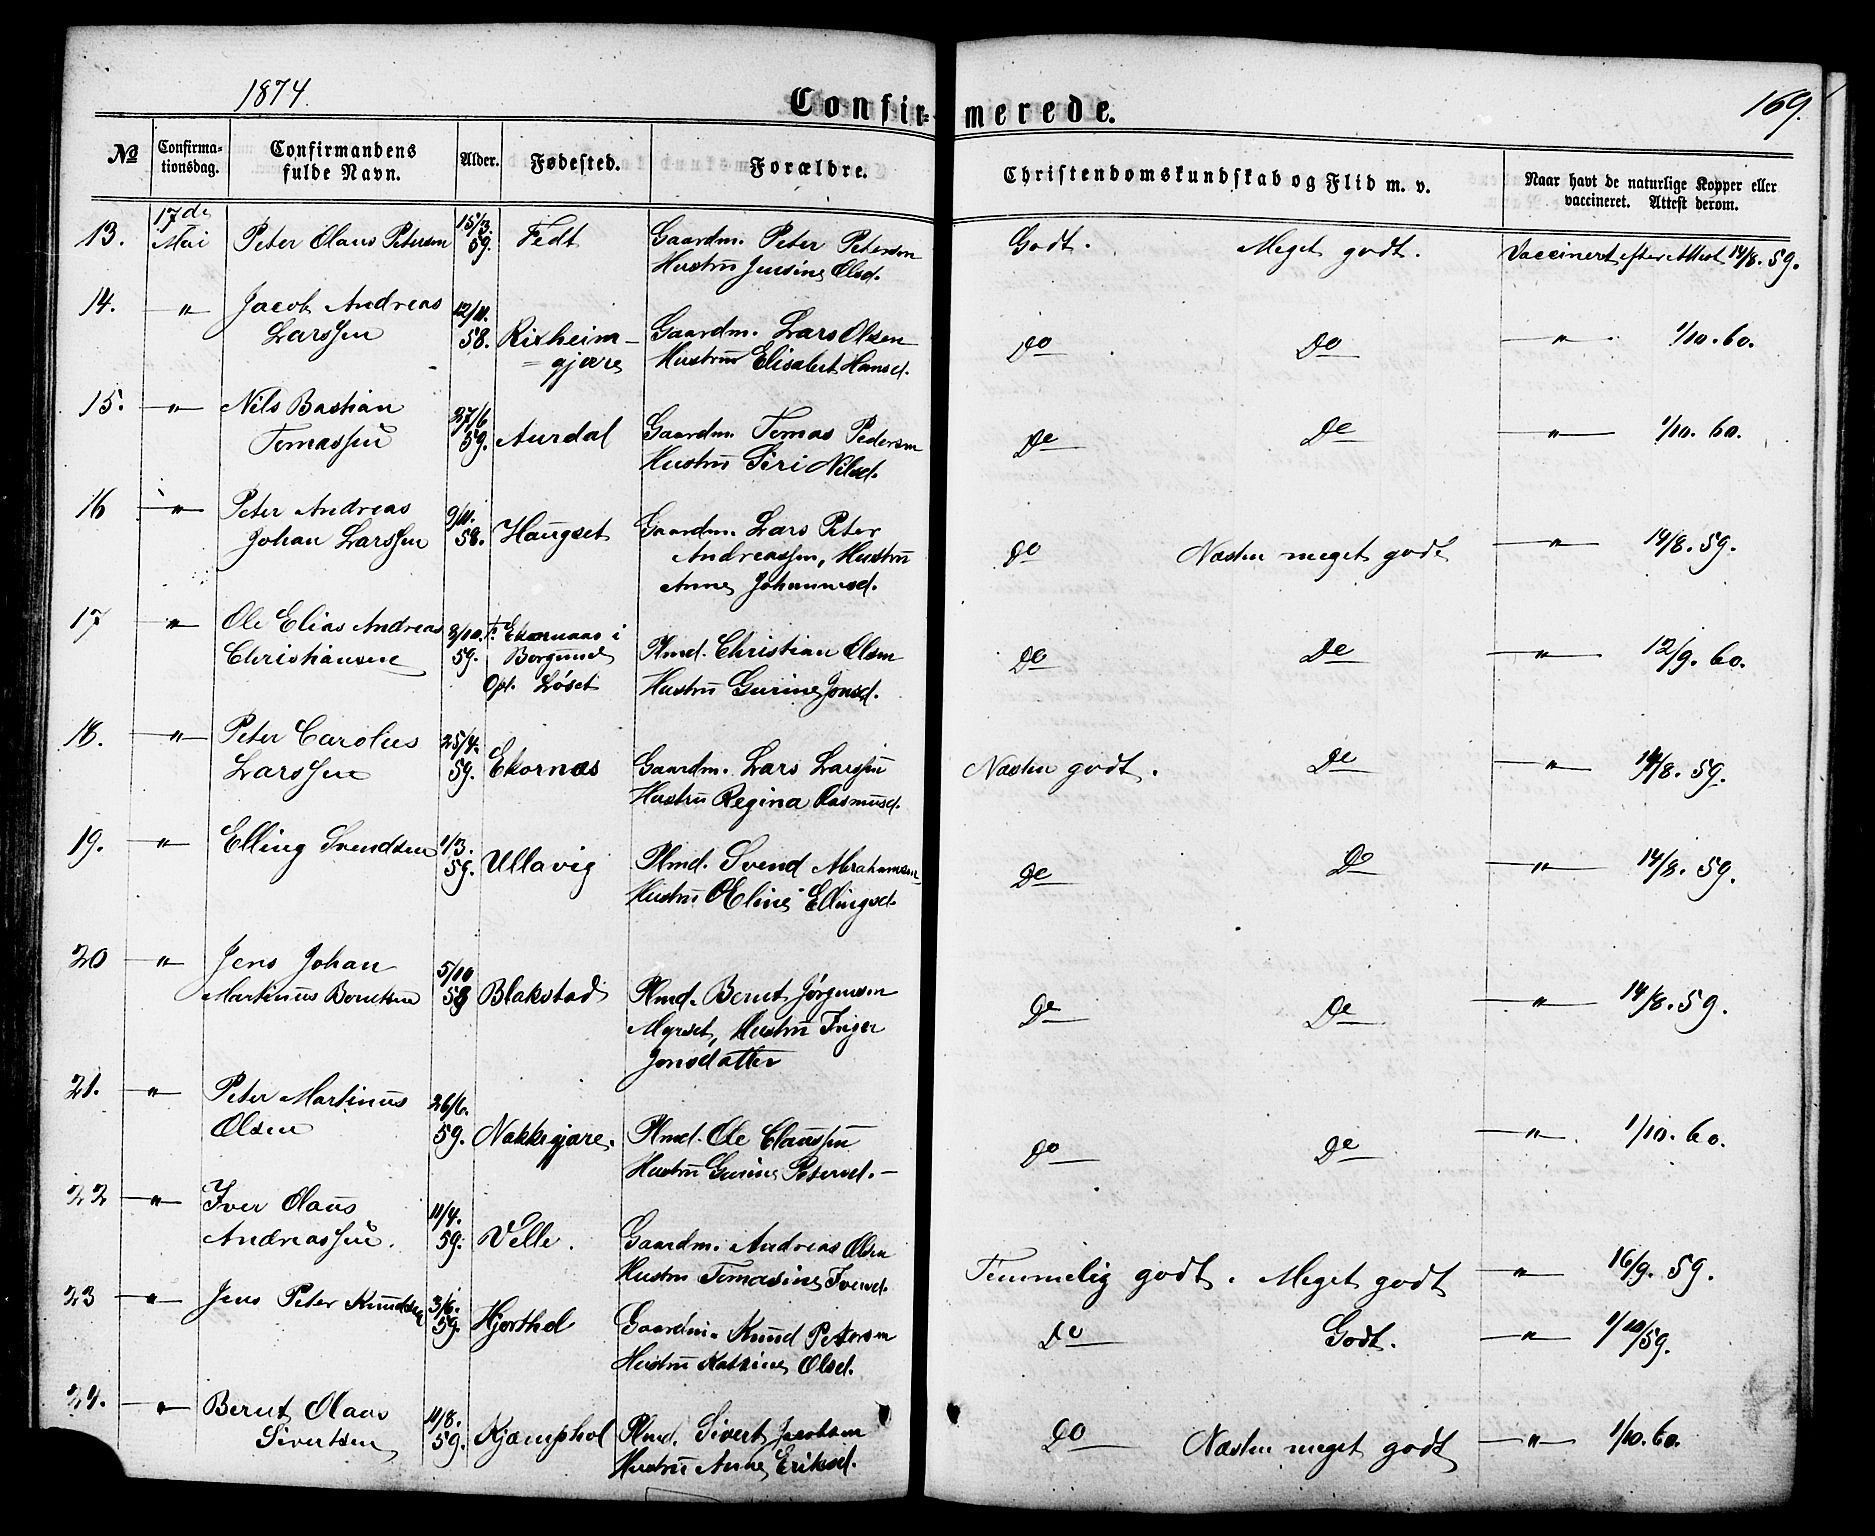 1874.
Confir= merede.
169.
No
Confirma-
tionsdag.
Confirmandens
fulde Navn.
Alder.
Fødested.
Forældre.
Christendomskundskab og Flid m. v.
Naar havt de naturlige Kopper eller
vaccineret. Attest derom.
13. 17de Mai Peter Olaus Petersen 15/3. 59. Fedt Gaardm. Peter Peterson Godt. Meget godt. Vaccinert efter Attest 14/8. 59.
Hustru Jensine Olsd.
14. " Jacob Andreas 12/11. 58. Rixheim- Gaardm. Lars Olsen Do Do " 1/10. 60.
Larssen =gjære Hustru Elisabet Hansd.
15. " Nils Bastian 27/6 59. Aurdal Gaardm. Tomas Pedersen Do Do " 1/10. 60.
Tomassen Hustru Siri Nilsd.
16 " Peter Andreas 9/11. 58. Haugset Gaardm. Lars Peter Do Næsten meget godt " 14/8. 59.
Johan Larssen Andreassen, Hustru
Anne Johannesd.
17 " Ole Elias Andreas 2/10. 59. F. Ekornaas i Plmd. Christian Olsen Do Do " 12/9. 60.
Christiansen Borgund Hustru Gurine Jonsd.
Opf. Løset
18. " Peter Carolus 25/4. 59. Ekornæs Gaardm. Lars Larssen Næsten godt. Do " 14/8. 59.
Larssen Hustru Regina Rasmusd.
19. " Elling Svendsen 1/3. 59. Ullavig Plmd. Svend Abrahamsen Do Do " 14/8. 59.
Hustru Oline Ellingsd.
20 " Jens Johan 5/10 58 Blakstad Plmd. Bernt Jørgensen Do Do " 14/8. 59.
Martinus Berntsen Myrset, Hustru Inger
Jonsdatter
21. " Peter Martinus 26/6. 59. Nakkegjære. Plmd. Ole Claussen Do Do " 1/10. 60.
Olsen Hustru Gurine Petersd. -
22 " Iver Olaus 11/4. 59. Velle. Gaardm. Andreas Olsen Temmelig godt. Meget godt " 16/9. 59.
Andreassen. Hustru Tomasine Iversd.
23 " Jens Peter Knudsen 3/6. 59. Hjorthol Gaardm. Knud Peterson Do Godt. " 1/10/59.
Hustru Katrine Olsd.
24. " Bernt Olaus 11/8. 59. Kjæmphol Plmd. Sivert Jacobsen Do Næsten meget godt " 1/10. 60.
Sivertsen Hustru Anne Eriksd.